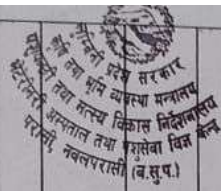 लुम्बिनी प्रदेश सरकार
कृषि तथा भूमि व्यवस्था मन्त्रालय
पशुपन्छी तथा मत्स्य विकास निर्देशनालय
भेटेरिनरी अस्पताल तथा पशुसेवा विज्ञ केन्द्र
परासी, नवलपरासी (ब.सु.प.)